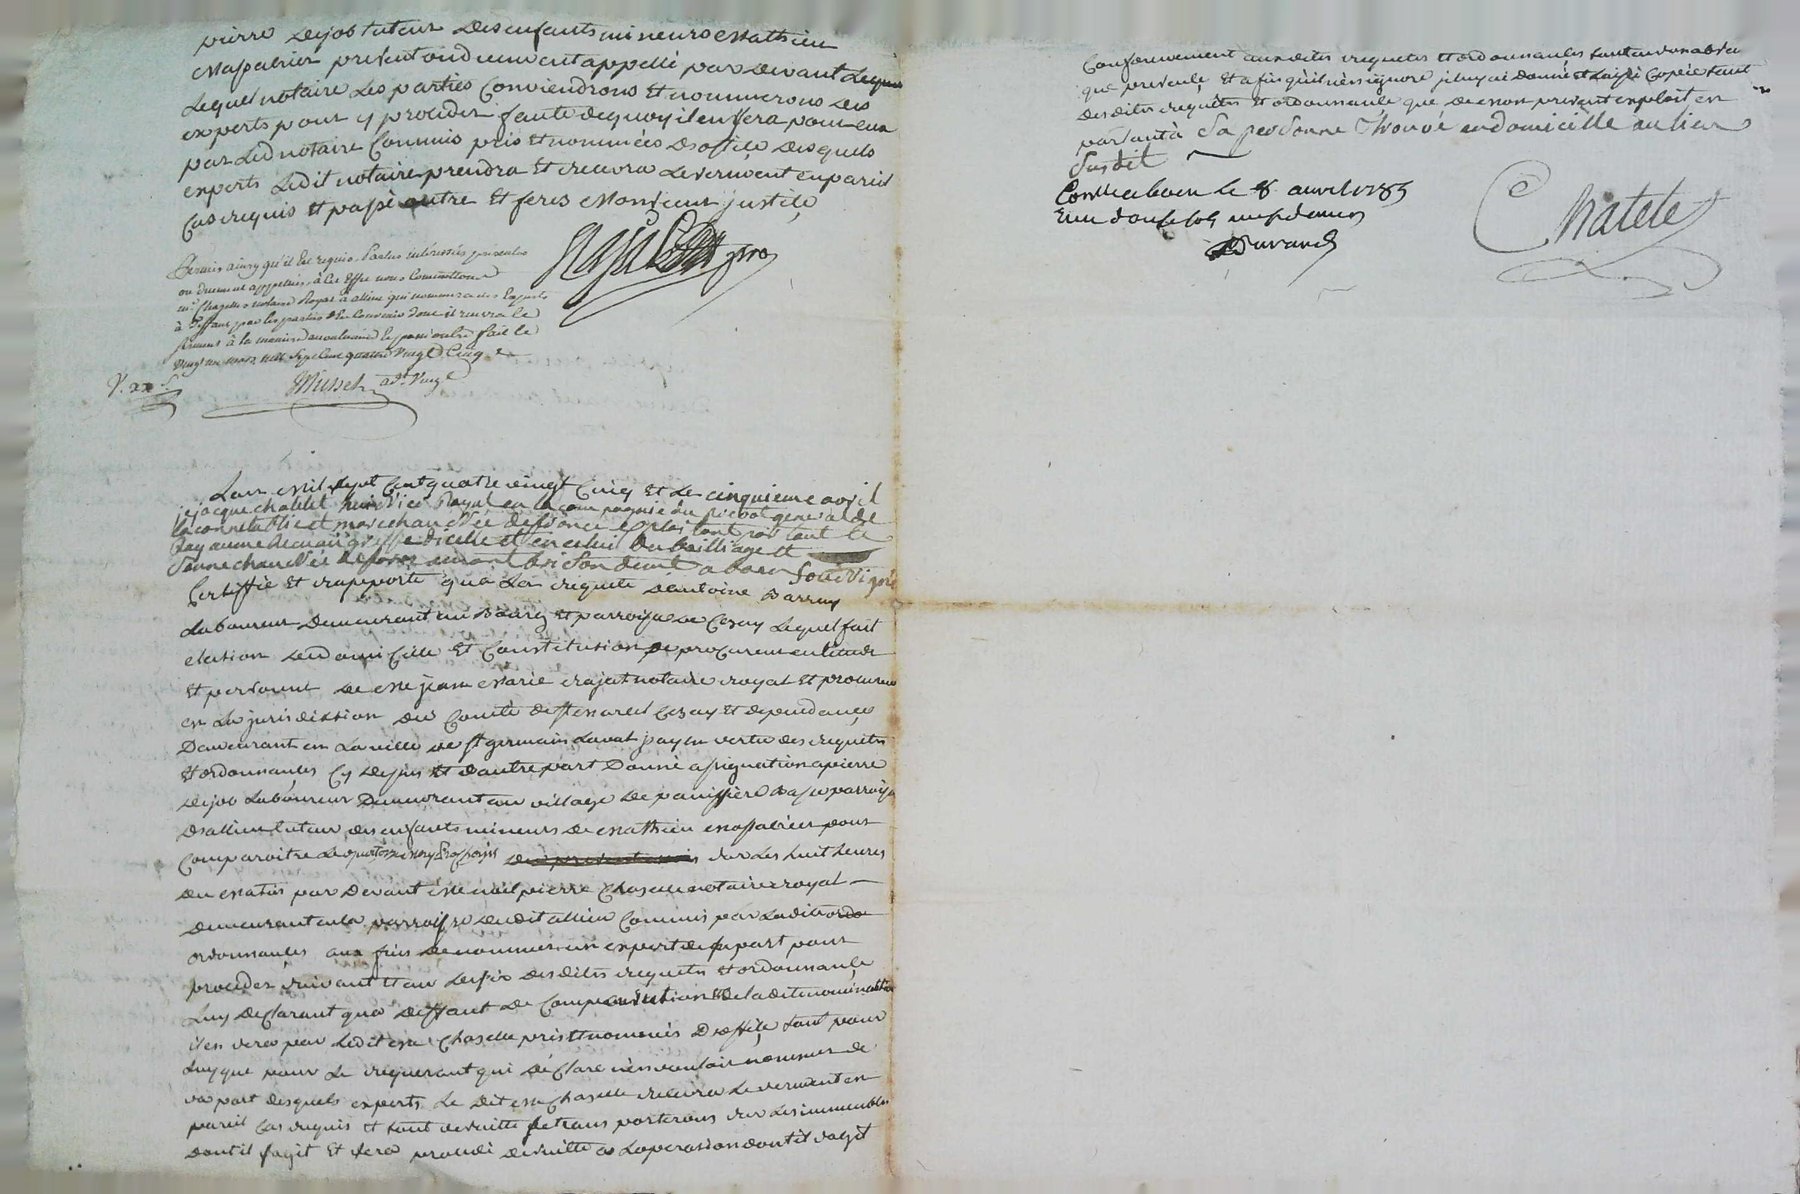 pierre dejob tuteur des enfants mineurs mathieu
present ou duement appellé par devant lequel
lequel notaire les parties conviendrons et nommerons des
experts pour y proceder faute de quoy il en sera pour eux
par led notaire commis pris et nommées d'office desquels
experts ledit notaire prendra et recevra le serment en pareil
cas requis et passé outre et feres monsieur justice
Permis ainsy qu'il est requis parties interessés presentes
ou duement appellées, à cet effet nous commettons
me Chazelle notaire Royal à allieu qui nommera des Experts
à deffaut par les parties d'en convenir dont il recevra le
serment à la maniere accoutumée et passé outre fait le
vingt un mars mil sept cent quatre vingt cinq
L'an mil sept cent quatre vingt cinq et le cinquieme avril
je jacque chatelet huissier Royal en la compagnie du prevot general de
la connetablie et marechaussée de france exploitant par tout le
Royaume et en celui du bailliage et
senechaussée de forez a boen soussigné
Certiffie et rapporte qu'a la requete d'antoine Barray
laboureur demeurant au Bourg et parroisse de Cezay lequel fait
election de domicille et constitution de procureur en l'étude
et personne de me jean marie rajat notaire royal et procureur
en la jurisdiction du Comté de Cezay et dependances
Demeurant en la ville de st germain laval jay en vertu des requetes
et ordonnances cy dessus et d'autre part donné assignation a pierre
dejob laboureur demeurant au village de panissiere Basse parroisse
d'allieu tuteur des enfants mineurs de mathieu pour
comparoitre le sur les huit heures
du matin par devant me noel pierre Chazelle notaire royal
demeurant en la parroisse dudit allieu commis par ladite ordo
ordonnances aux fins de nommer un expert de sa part pour
proceder suivant et au desir desdites requetes et ordonnance
luy declarant qu'a deffaut de comparution et de ladite nomination
il en sera par ledit me Chazelle pris et nommés d'office tant pour
luy que pour le requerant qui declare n'en vouloir nommer de
sa part desquels experts le dit me Chazelle recevra le serment en
pareil cas requis et tout de suitte se transporterons sur les immeubles
dont il s'agit et sera procedé de suitte a l'operation dont il s'agit
Conformement auxdites requetes et ordonnances
que presente, et afin qu'il n'en ignore je luy ai donné et laissé copie tant
desdites requetes et ordonnance que de mon present exploit en
parlant à sa personne trouvé en domicille au lieu
susdit
Conlle a boen le 8 avril 1785
Durand
Chatelet